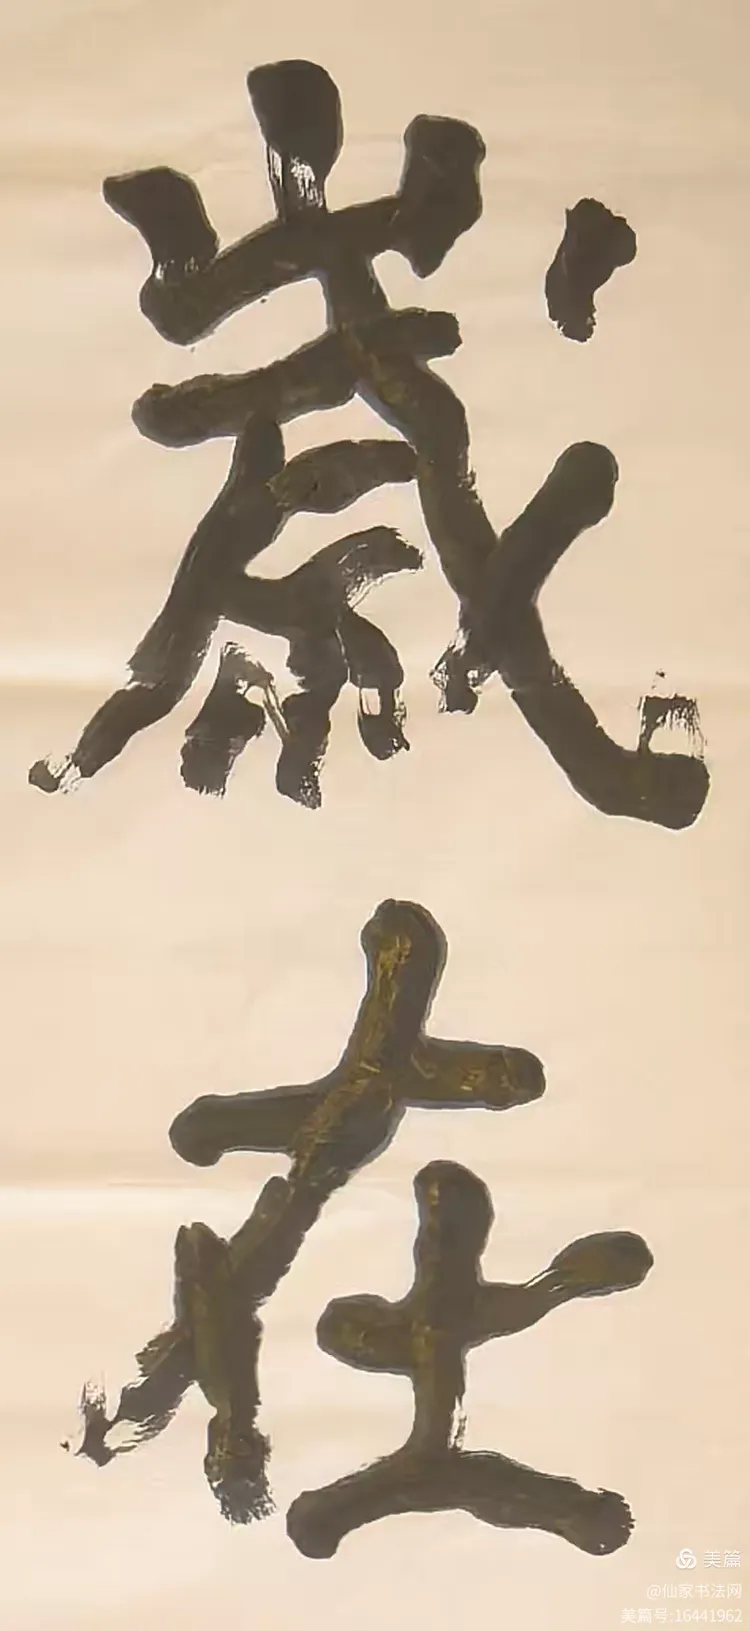 嵗
在
美篇
@仙家书法网
美篇号:16441962